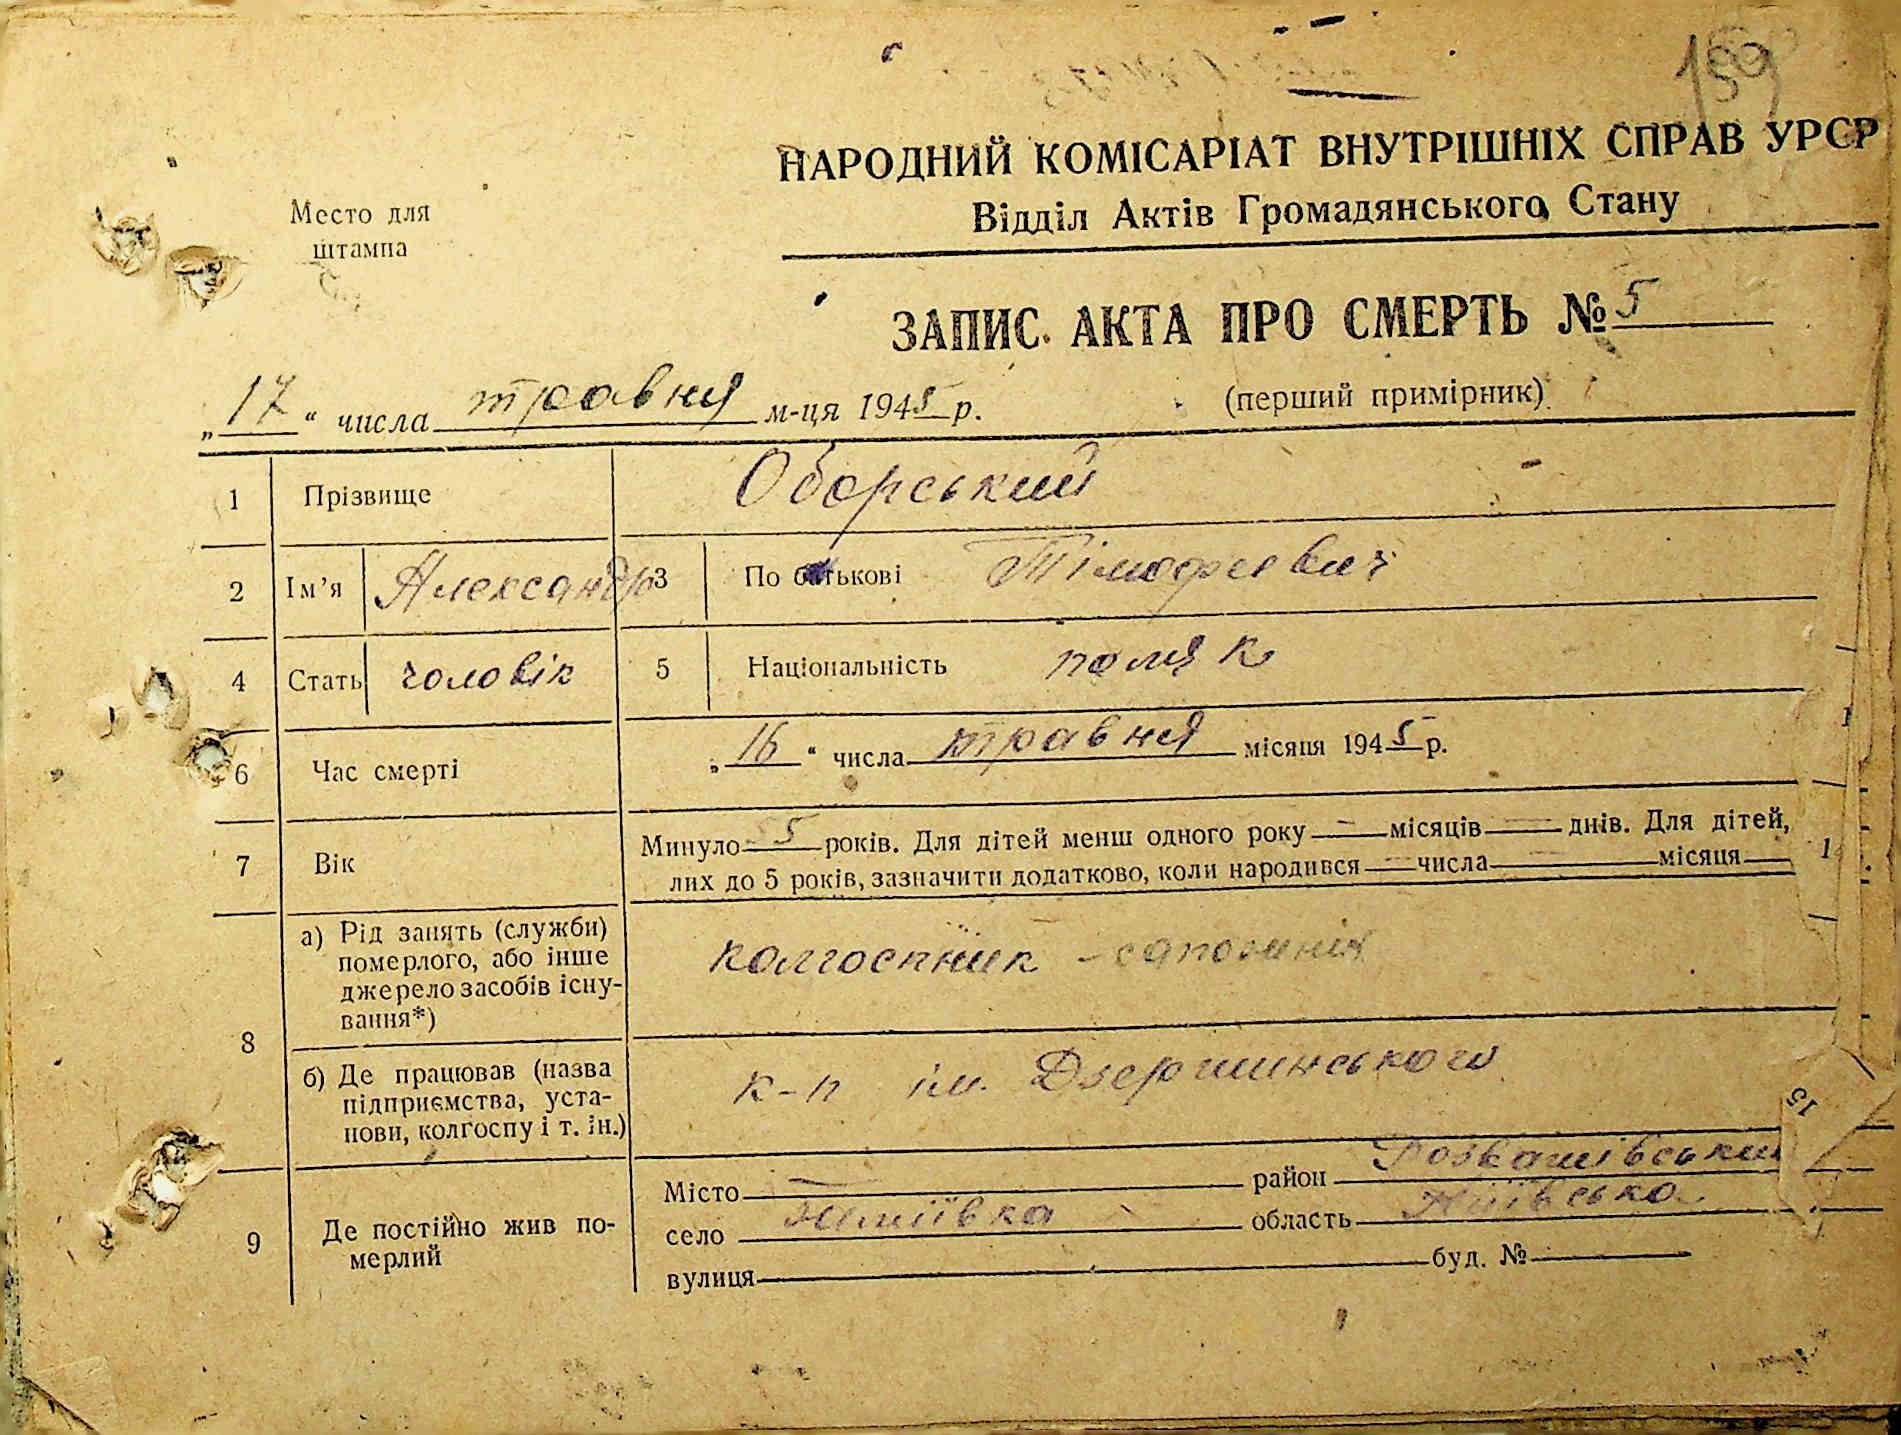 НАРОДНИЙ КОМІСАРІАТ ВНУТРІШНІХ СПРАВ УРСР
Відділ Актів Громадянського Стану
Место для
штампа
ЗАПИС АКТА ПРО СМЕРТЬ № 5
„17“ числа травня м-ця 1945 р.
(перший примірник)
1 Прізвище Оборський
2 Ім'я Александр 3 По батькові Тімофеевич
4 Стать чоловік 5 Національність поляк
6 Час смерті „16“ числа травня місяця 1945 р.
7 Вік Минуло 55 років. Для дітей менш одного року — місяців — днів. Для дітей,
лих до 5 років, зазначити додатково, коли народився — числа — місяця
8 а) Рід занять (служби)
померлого, або інше
джерело засобів існу-
вання*)
колгоспник -
б) Де працював (назва
підприємства, уста-
нови, колгоспу і т. ін.)
к-п ім. Дзержинського
9 Де постійно жив по-
мерлий
Місто — район Розважівський
село область Київська
вулиця буд. №
15